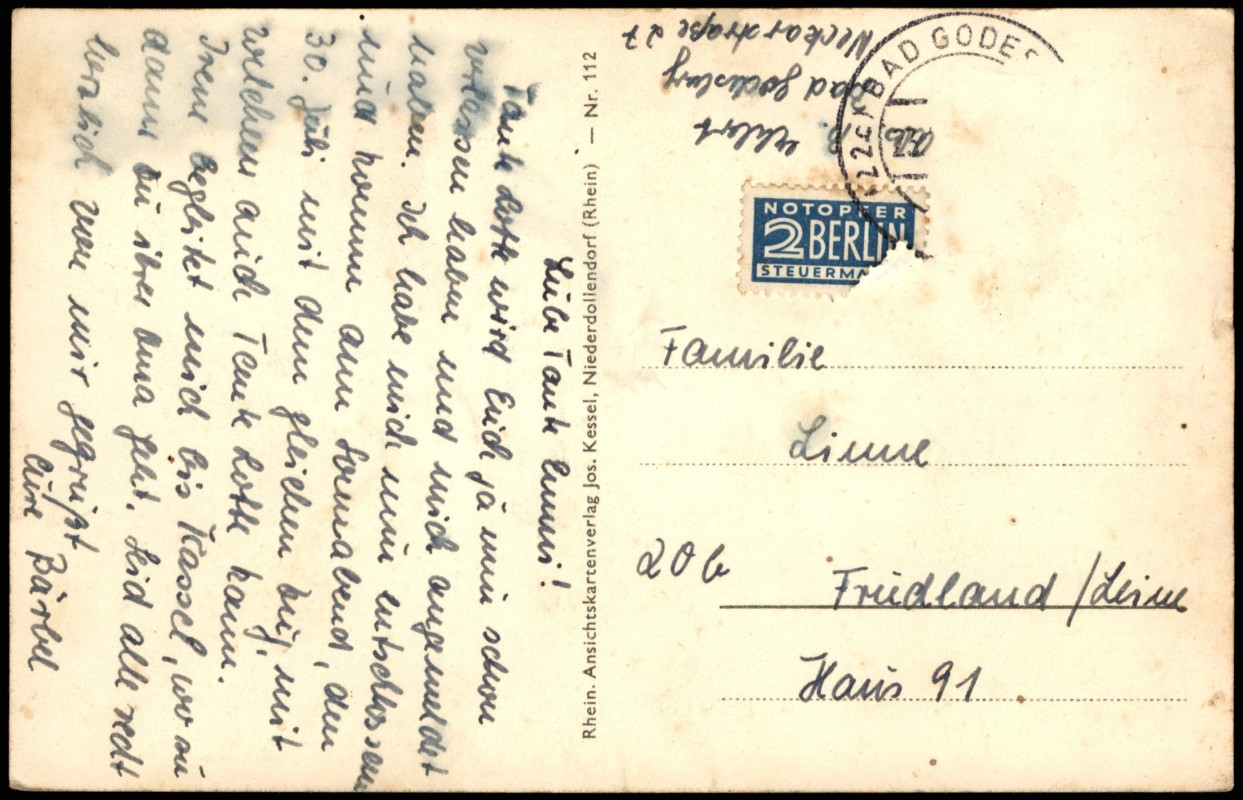 Liebe Tante Emmi!
Tante Lotte wird Euch ja nun schon
verlassen haben und mich angemeldet
haben. Ich habe mich nun entschlossen
und komme am Sonnabend, den
30. Juli mit dem gleichen Zug, mit
welchem auch Tante Lotte kam.
Irene begleitet mich bis Kassel, wo sie
dann zu ihrer Oma geht. Seid alle recht
herzlich von mir gegrüßt
Eure Bärbel
Rhein. Ansichtskartenverlag Jos. Kessel, Niederdollendorf (Rhein) — Nr. 112
Abs. B.
Bad Godesberg
Neckarstraße 27
(22c) BAD GODES
NOTOPFER
2 BERLIN
STEUERMA
Familie
Linne
20b
Friedland/Leine
Haus 91